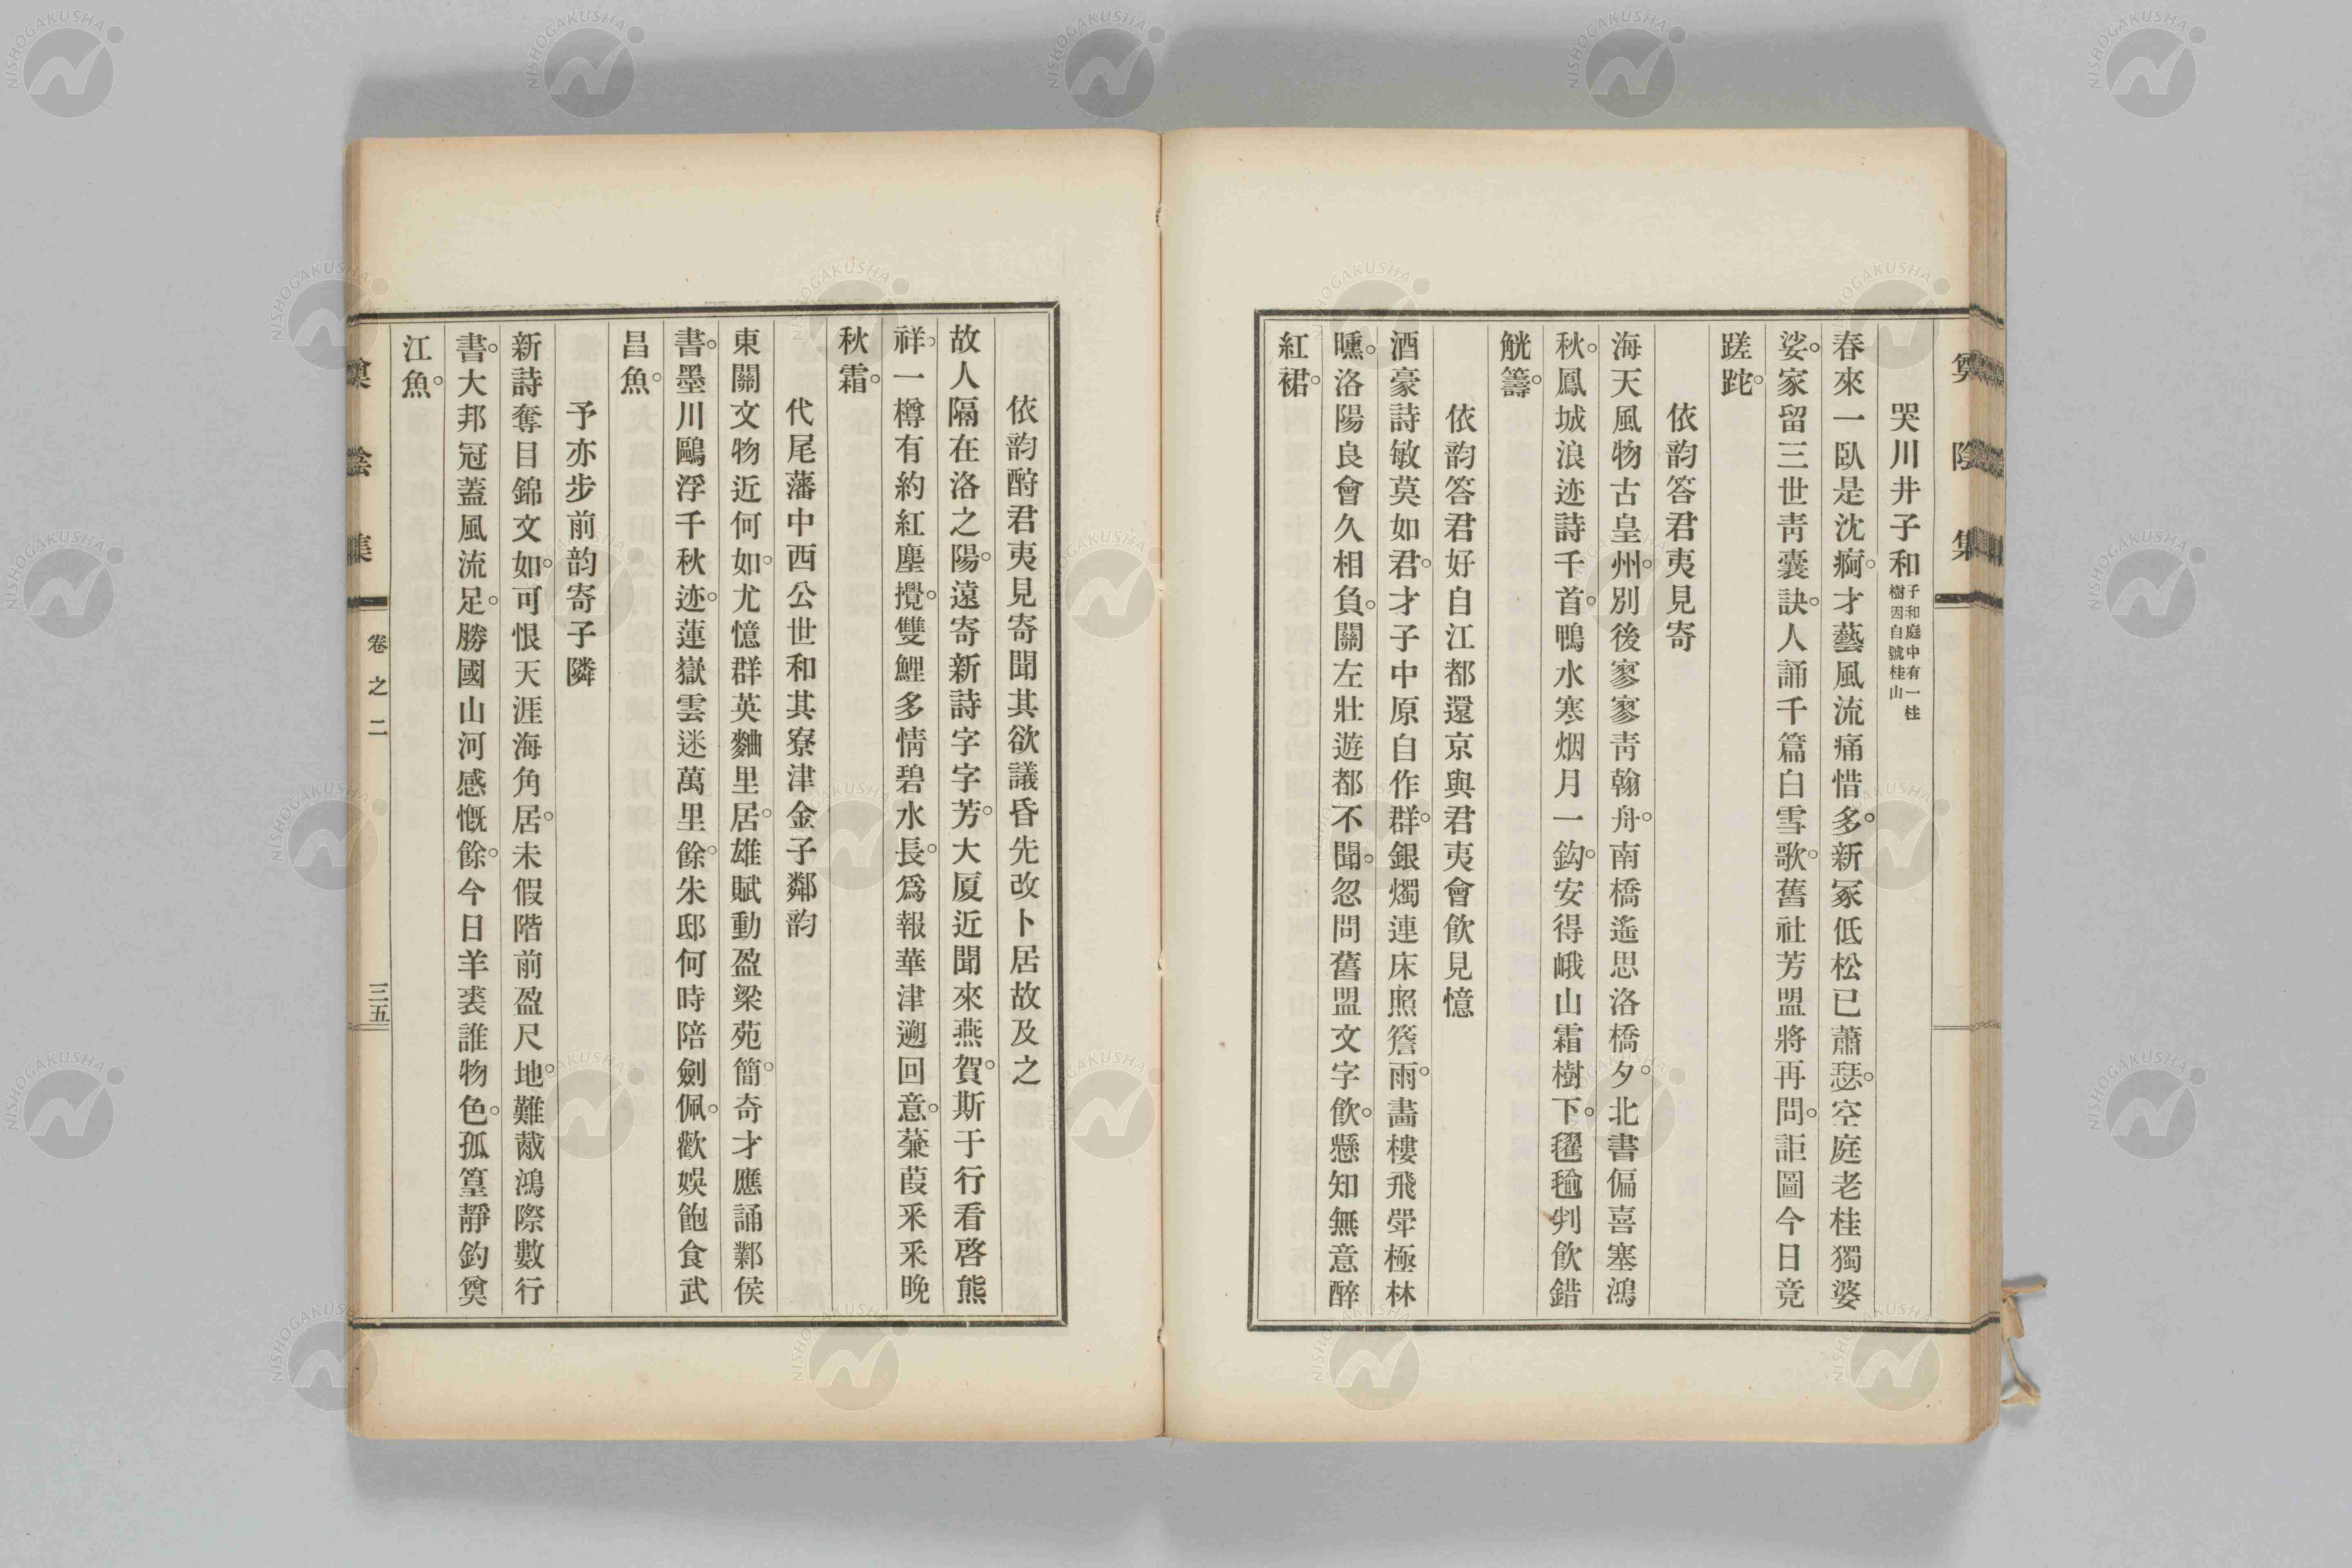 奠陰集
哭川井子和子和庭中有一桂
樹因自號桂山
春來一臥是沈痾。才藝風流痛惜多。新冢低松已蕭瑟。空庭老桂獨婆
娑。家留三世靑囊訣。人誦千篇白雪歌。舊社芳盟將再問。詎圖今日竟
蹉跎。
依韵答君夷見寄
海天風物古皇州。別後寥寥靑翰舟。南橋遙思洛橋夕。北書偏喜塞鴻
秋。鳳城浪迹詩千首。鴨水寒烟月一鈎。安得峨山霜樹下。氍毹判飮錯
觥籌。
依韵答君好自江都還京與君夷會飮見憶
酒豪詩敏莫如君。才子中原自作群。銀燭連床照簷雨。畵樓飛斝極林
曛。洛陽良會久相負。關左壯遊都不聞。忽問舊盟文字飮。懸知無意醉
紅裙。
依韵酧君夷見寄聞其欲議昏先改卜居故及之
故人隔在洛之陽。遠寄新詩字字芳。大厦近聞來燕賀。斯于行看啓熊
祥。一樽有約紅塵攪。雙鯉多情碧水長。爲報華津遡回意。蒹葭釆釆晩
秋霜。
代尾藩中西公世和其寮津金子鄰韵
東關文物近何如。尤憶群英麯里居。雄賦動盈梁苑簡。奇才應誦鄴侯
書。墨川鷗浮千秋迹。蓮嶽雲迷萬里餘。朱邸何時陪劍佩。歡娛飽食武
昌魚。
予亦步前韵寄子隣
新詩奪目錦文如。可恨天涯海角居。未假階前盈尺地。難裁鴻際數行
書。大邦冠蓋風流足。勝國山河感慨餘。今日羊裘誰物色。孤篁靜釣奠
江魚。
奠陰集
卷之二
三五
NISHOGAKUSHA